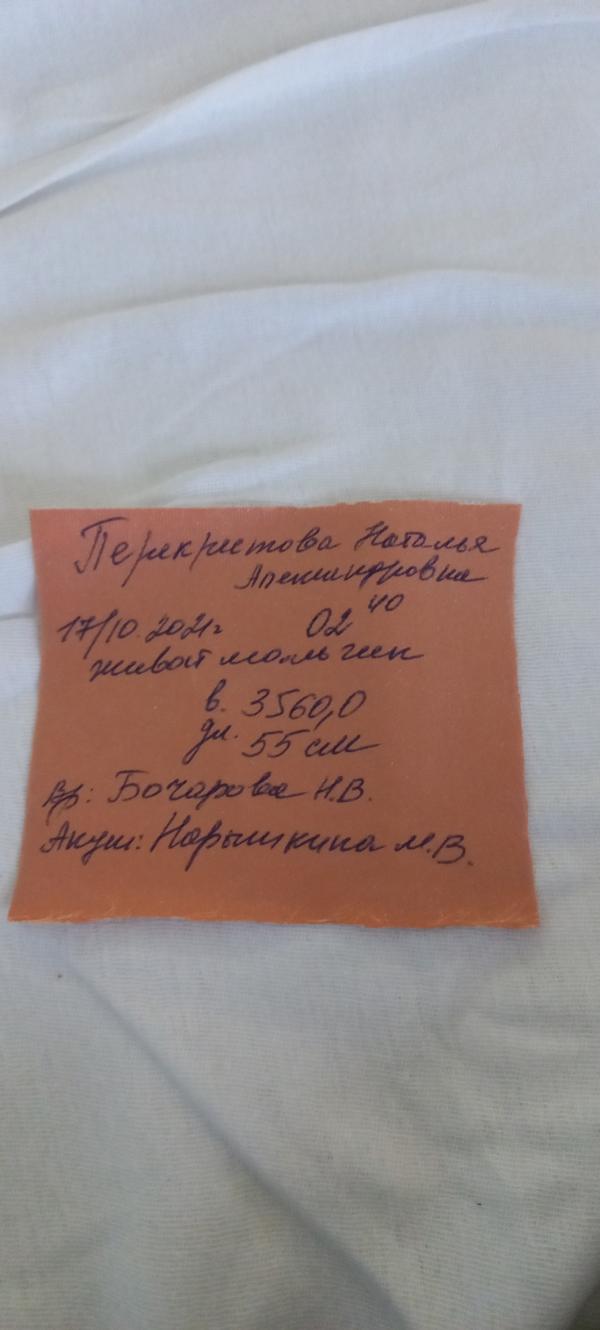 Перекрестова Наталья
Александровна
17/10.2021г 02 40
живой мальчик
в. 3560,0
дл. 55 см
Вр: Бочарова Н.В.
Акуш: Нарышкина М.В.